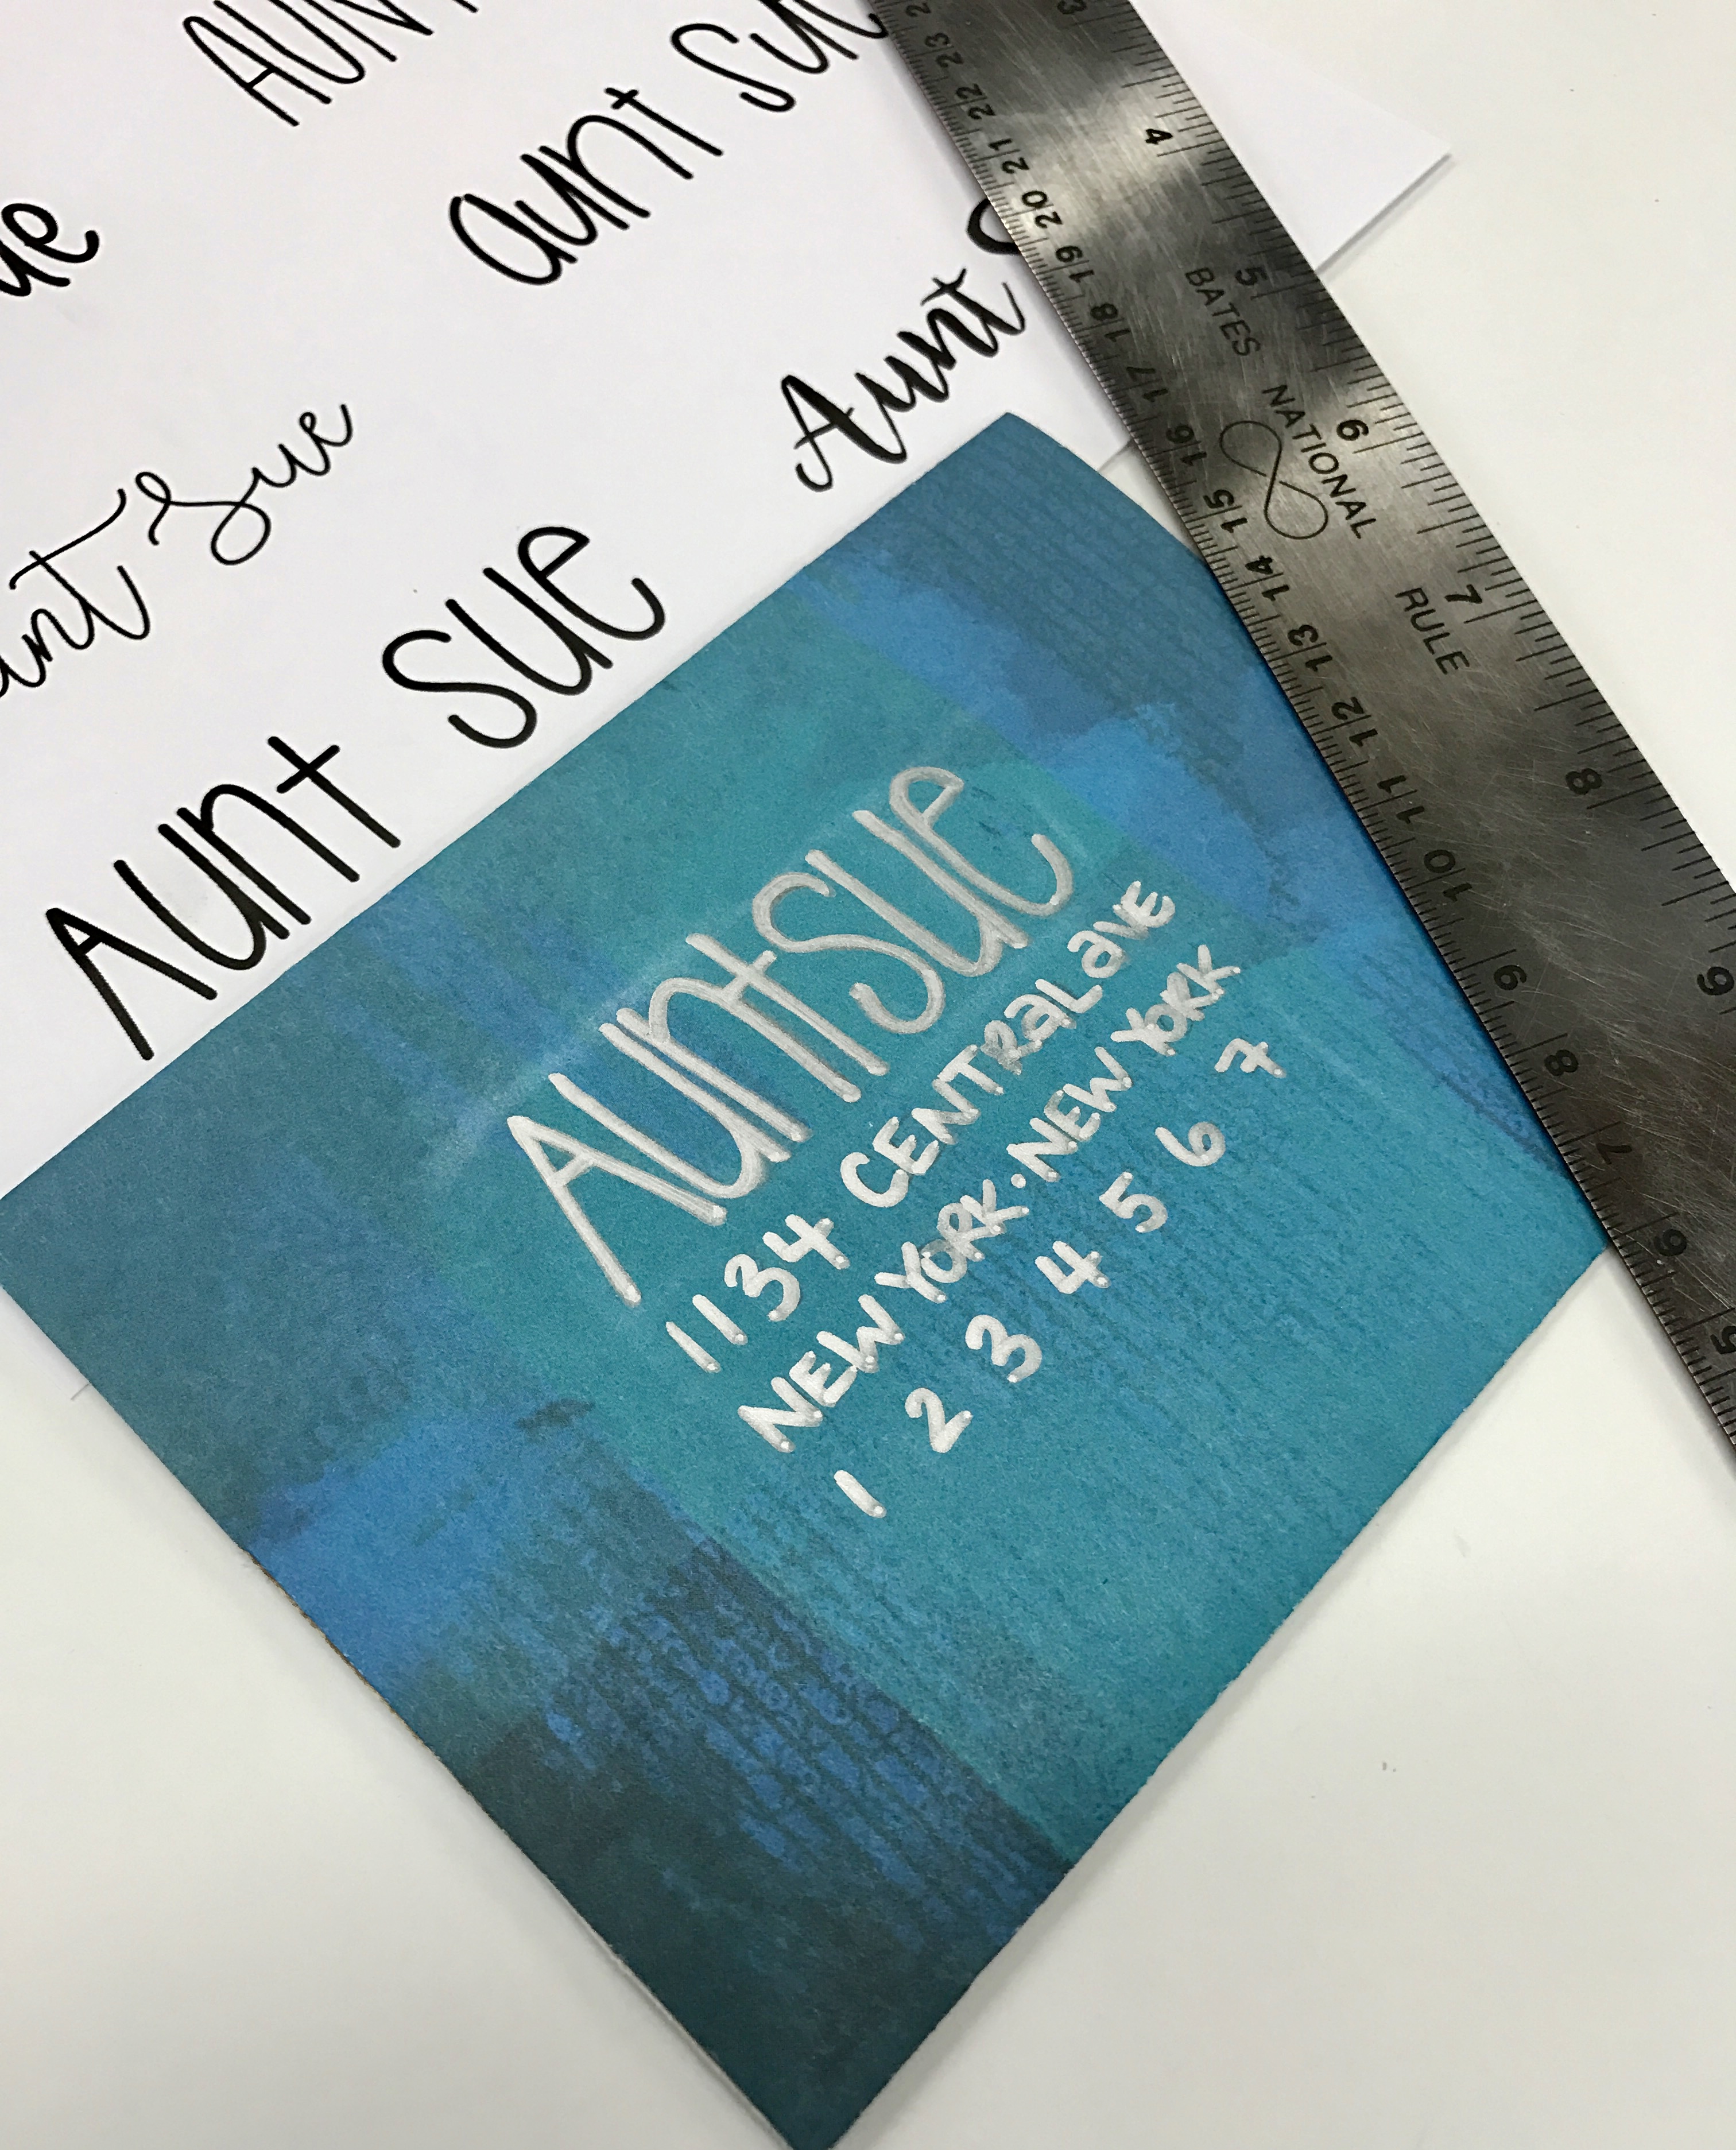 AUNT
aunt Sue
ue
Aunt
ant Sue
AUNT SUE
AUNT SUE
1134 CENTRAL AVE
NEW YORK • NEW YORK
1 2 3 4 5 6 7
3 4 5 6 7 8 9
BATES NATIONAL RULE
23 22 21 20 19 18 17 16 15 14 13 12 11 10 9 8 7 6 5